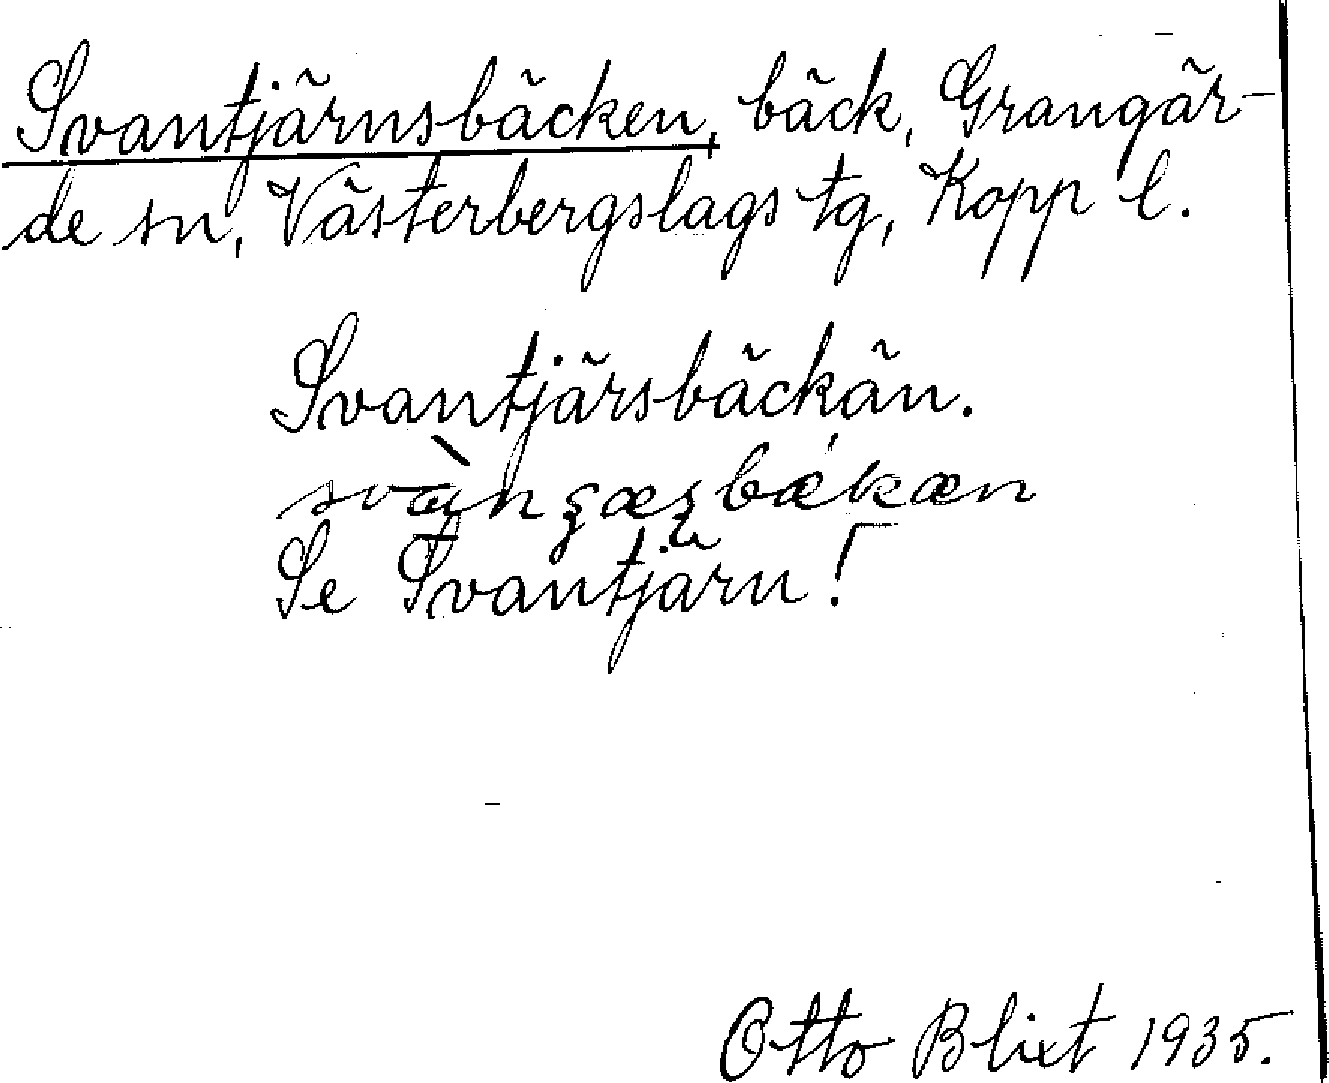 Svantjärnsbäcken, bäck, Grangär-
de sn, Västerbergslags tg, Kopp l.
Svantjärsbäckän.
Se Svantjärn!
Otto Blixt 1935.